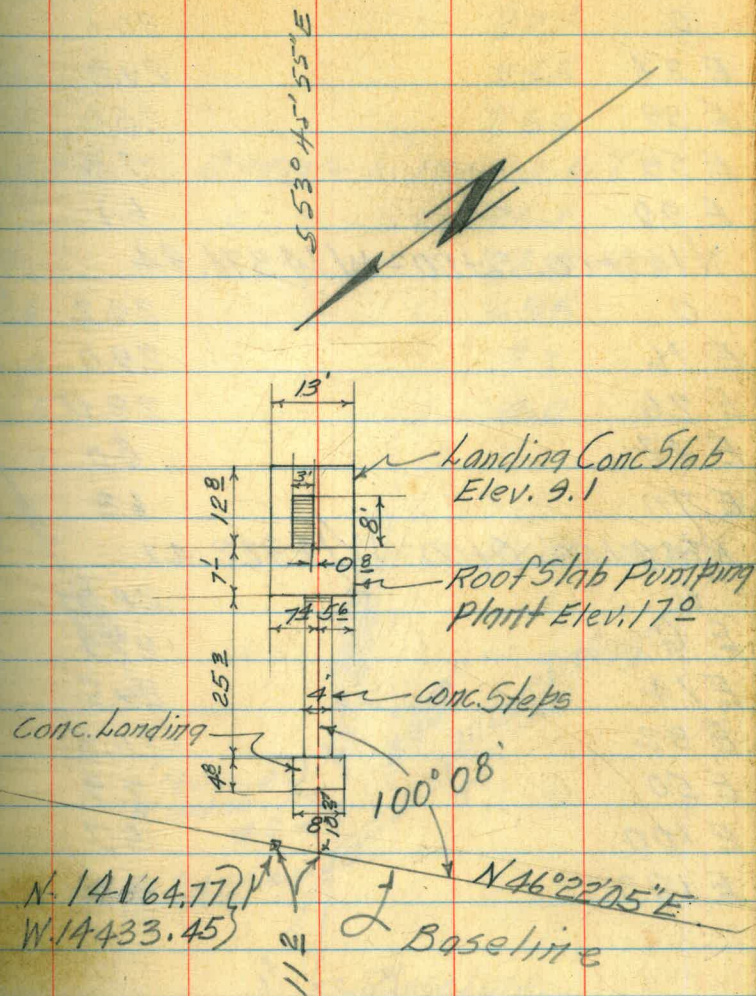 S 53° 45' 55" E
13'
Landing Conc Slab
Elev. 9.1
3'
12 8
8'
7'
0 8
Roof Slab Pumping
Plant Elev. 17 0
7 4 5 6
25 3
4'
Conc. Steps
Conc. Landing
4 8
100° 08'
8'
10.3'
N. 14164.77
W. 14433.45
N 46° 22' 05" E
Baseline
11 2